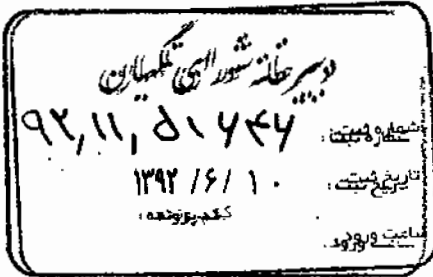 دبیرخانه شورای نگهبان
شماره ثبت: ۹۲,۱۱, ۵۱۶۴۶
تاریخ ثبت: ۱۳۹۲ /۶/ ۱۰
کد پرونده:
ساعت ورود: